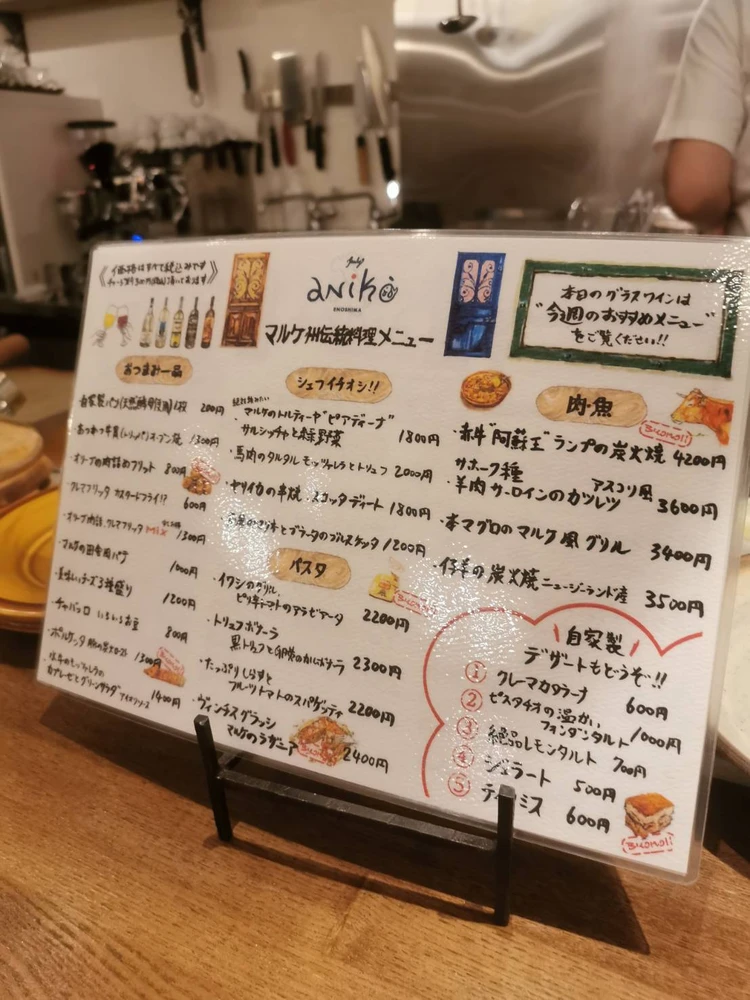 《価格はすべて税込みです
aniko
ENOSHIMA
マルケ州伝統料理メニュー
本日のグラスワインは
"今週のおすすめメニュー"
をご覧ください!!
おつまみ一品
200円
1300円
・オリーブの肉詰めフリット 800円
・クレマフリッタ カスタードフライ!?
600円
・オリーブ肉詰、クレマフリッタ MIX 1300円
・マルケの田舎風パテ 1000円
・美味しいチーズ3種盛り 1200円
・チャバッロ いろいろお豆 800円
・ポルケッタ 1300円
カプレーゼとグリーンサラダ 1400円
シェフイチオシ!!
マルケのトルティーヤ"ピアディーナ"
サルシッチャと緑野菜 1800円
・馬肉のタルタル モッツァレラとトリュフ 2000円
・ヤリイカの串焼 スコッタディート 1800円
とブラータのブルスケッタ 1200円
パスタ
・イワシのグリル、
ピリ辛トマトのアラビアータ 2200円
・トリュフボナーラ
黒トリュフと卵黄のカルボナーラ 2300円
・たっぷりしらすと
フルーツトマトのスパゲッティ 2200円
・ヴィンチスグラッシ
マルケのラザニア 2400円
肉・魚
Buono!!
・赤牛"阿蘇王"ランプの炭火焼 4200円
サホーク種 アスコリ風
・羊肉サーロインのカツレツ 3600円
・本マグロのマルケ風グリル 3400円
・仔羊の炭火焼 ニュージーランド産 3500円
自家製
デザートもどうぞ!!
① クレーマカタラーナ 600円
② ピスタチオの温かい
フォンダンタルト 1000円
③ 絶品レモンタルト 700円
④ ジェラート 500円
⑤ ティラミス 600円
Buono!!